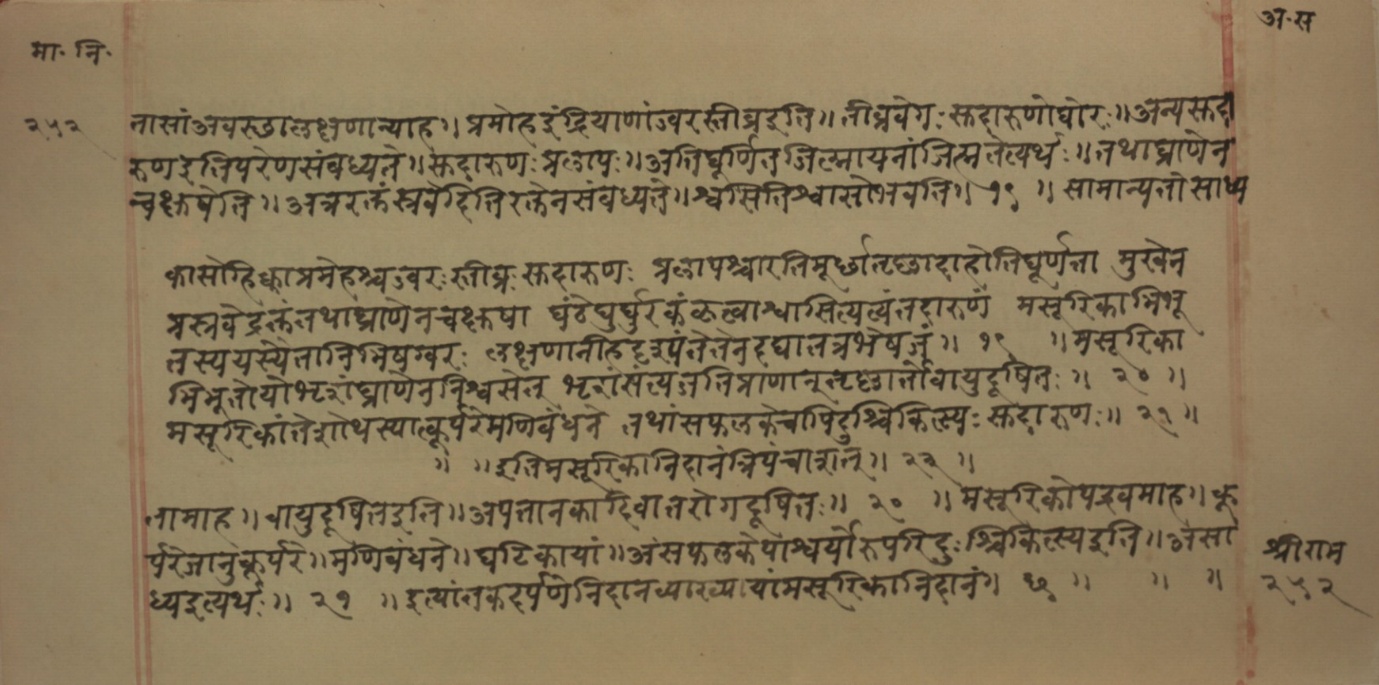 अ॰स
मा॰ नि॰
२५२
नासां अवस्छालक्षणान्याह॥ प्रमोहइंद्रियाणांज्वरस्तीव्रइति॥ तीव्रवेगः सुदारुणोघोरः॥ अन्यसुदा
रुणइतिपरेणसंबध्यते॥ सुदारुणः प्रलापः॥ अतिघूर्णित त्यर्थः॥ तथाघ्राणेन
चक्षुषेति॥ अत्ररक्तंस्त्रवेदितिरक्तेनसंबध्यते॥ श्वसितिश्वासोभवति॥ १९ ॥ सामान्यतोसाध्य
कासोहिक्काप्रमेहश्चज्वरःस्तीव्रः सुदारुणः प्रलापश्चारतिमूर्छातृष्णादाहोतिघूर्णता मुखेन
प्रस्त्रवेद्रक्तंतथाघ्राणेनचक्षुषा कंठेघुर्घुरकंकृत्वाश्वासित्यत्यंतदारुणं मसूरिकाभिभू
तस्ययस्यैतानिभिषग्वरः लक्षणानीह ॥ १९ ॥ मसूरिका
भिभूतोयोभृशंघ्राणेननिश्वसेत् भृशंसंत्यजतिप्राणान्तृष्णार्तोवायुदूषितः॥ २० ॥
मसूरिकांतेशोथस्यात्कूर्परेमणिबंधने तथांसफलकेचापिदुश्चिकित्स्यः सुदारुणः॥ २१ ॥
॥ ॥ इतिमसूरिकानिदानंत्रिपंचाशत्॥ २२ ॥
तामाह॥ वायुदूषितइति॥ अपतानकादिवातरोगदूषितः॥ २० ॥ मसूरिकोपद्रवमाह॥ कू
र्परेजानुकूर्परे॥ मणिबंधने॥ घटिकायां॥ अंसफलकेपार्श्वयोरुपरिदुःश्चिकित्स्यइति॥ असा
ध्यइत्यर्थः॥ २१ ॥ इत्यांतकदर्पणेनिदानव्याख्यायांमसूरिकानिदानं॥ ॥ ॥ ॥
श्रीराम
२५२